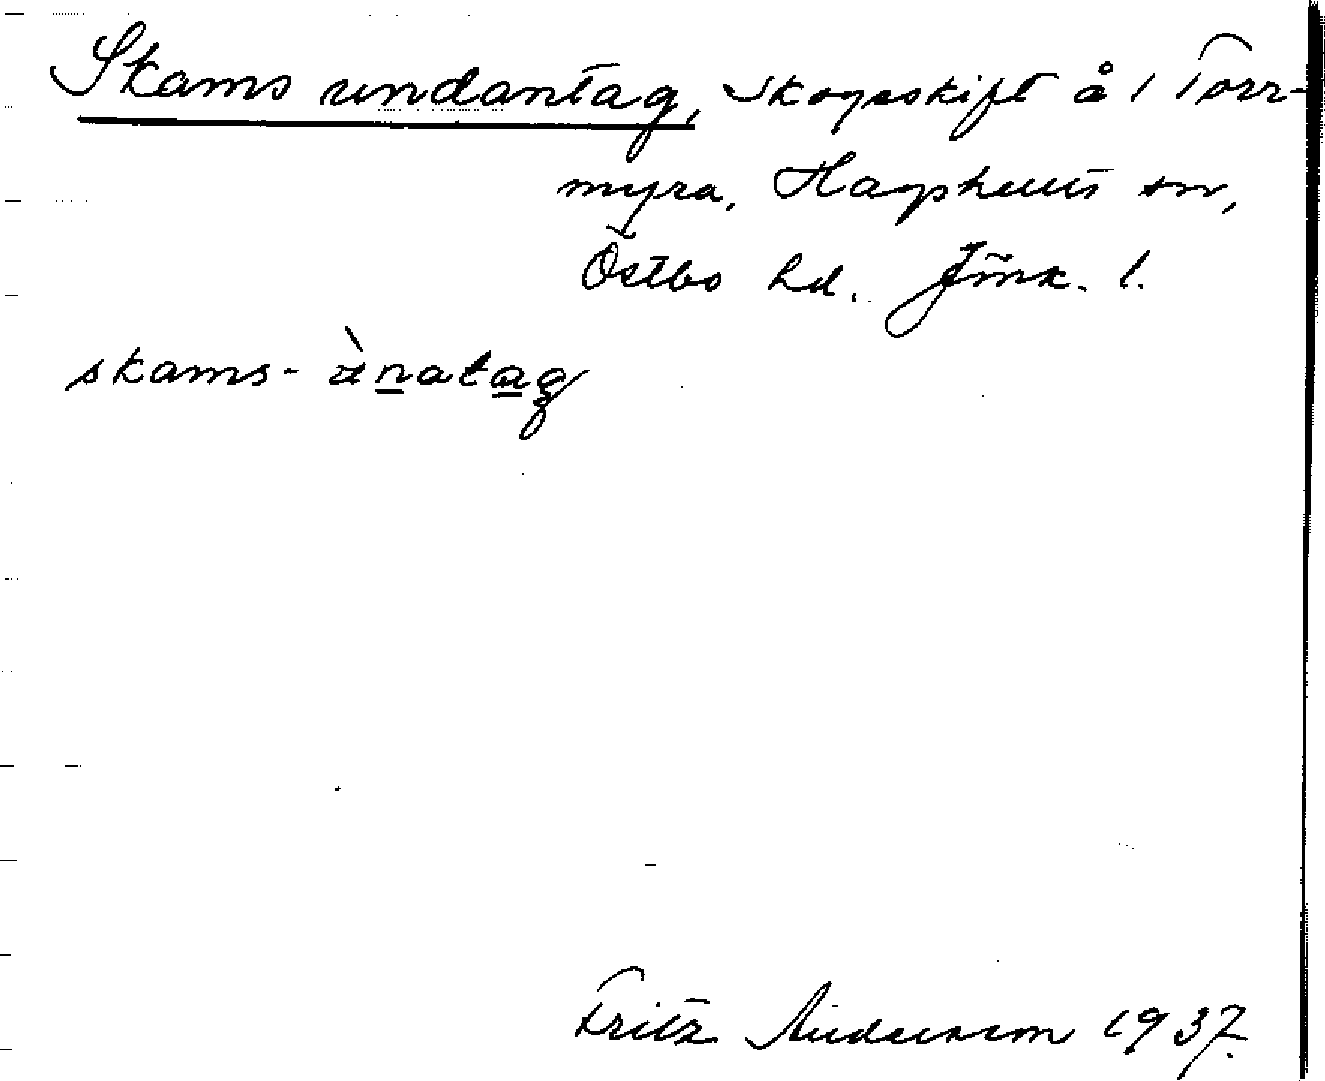 Skams undantag, skogsskift å 1 Torr-
myra, Hagshults sn,
Östbo hd. Jönk. l.
skams- ànatag
Fritz Andersson 1937.